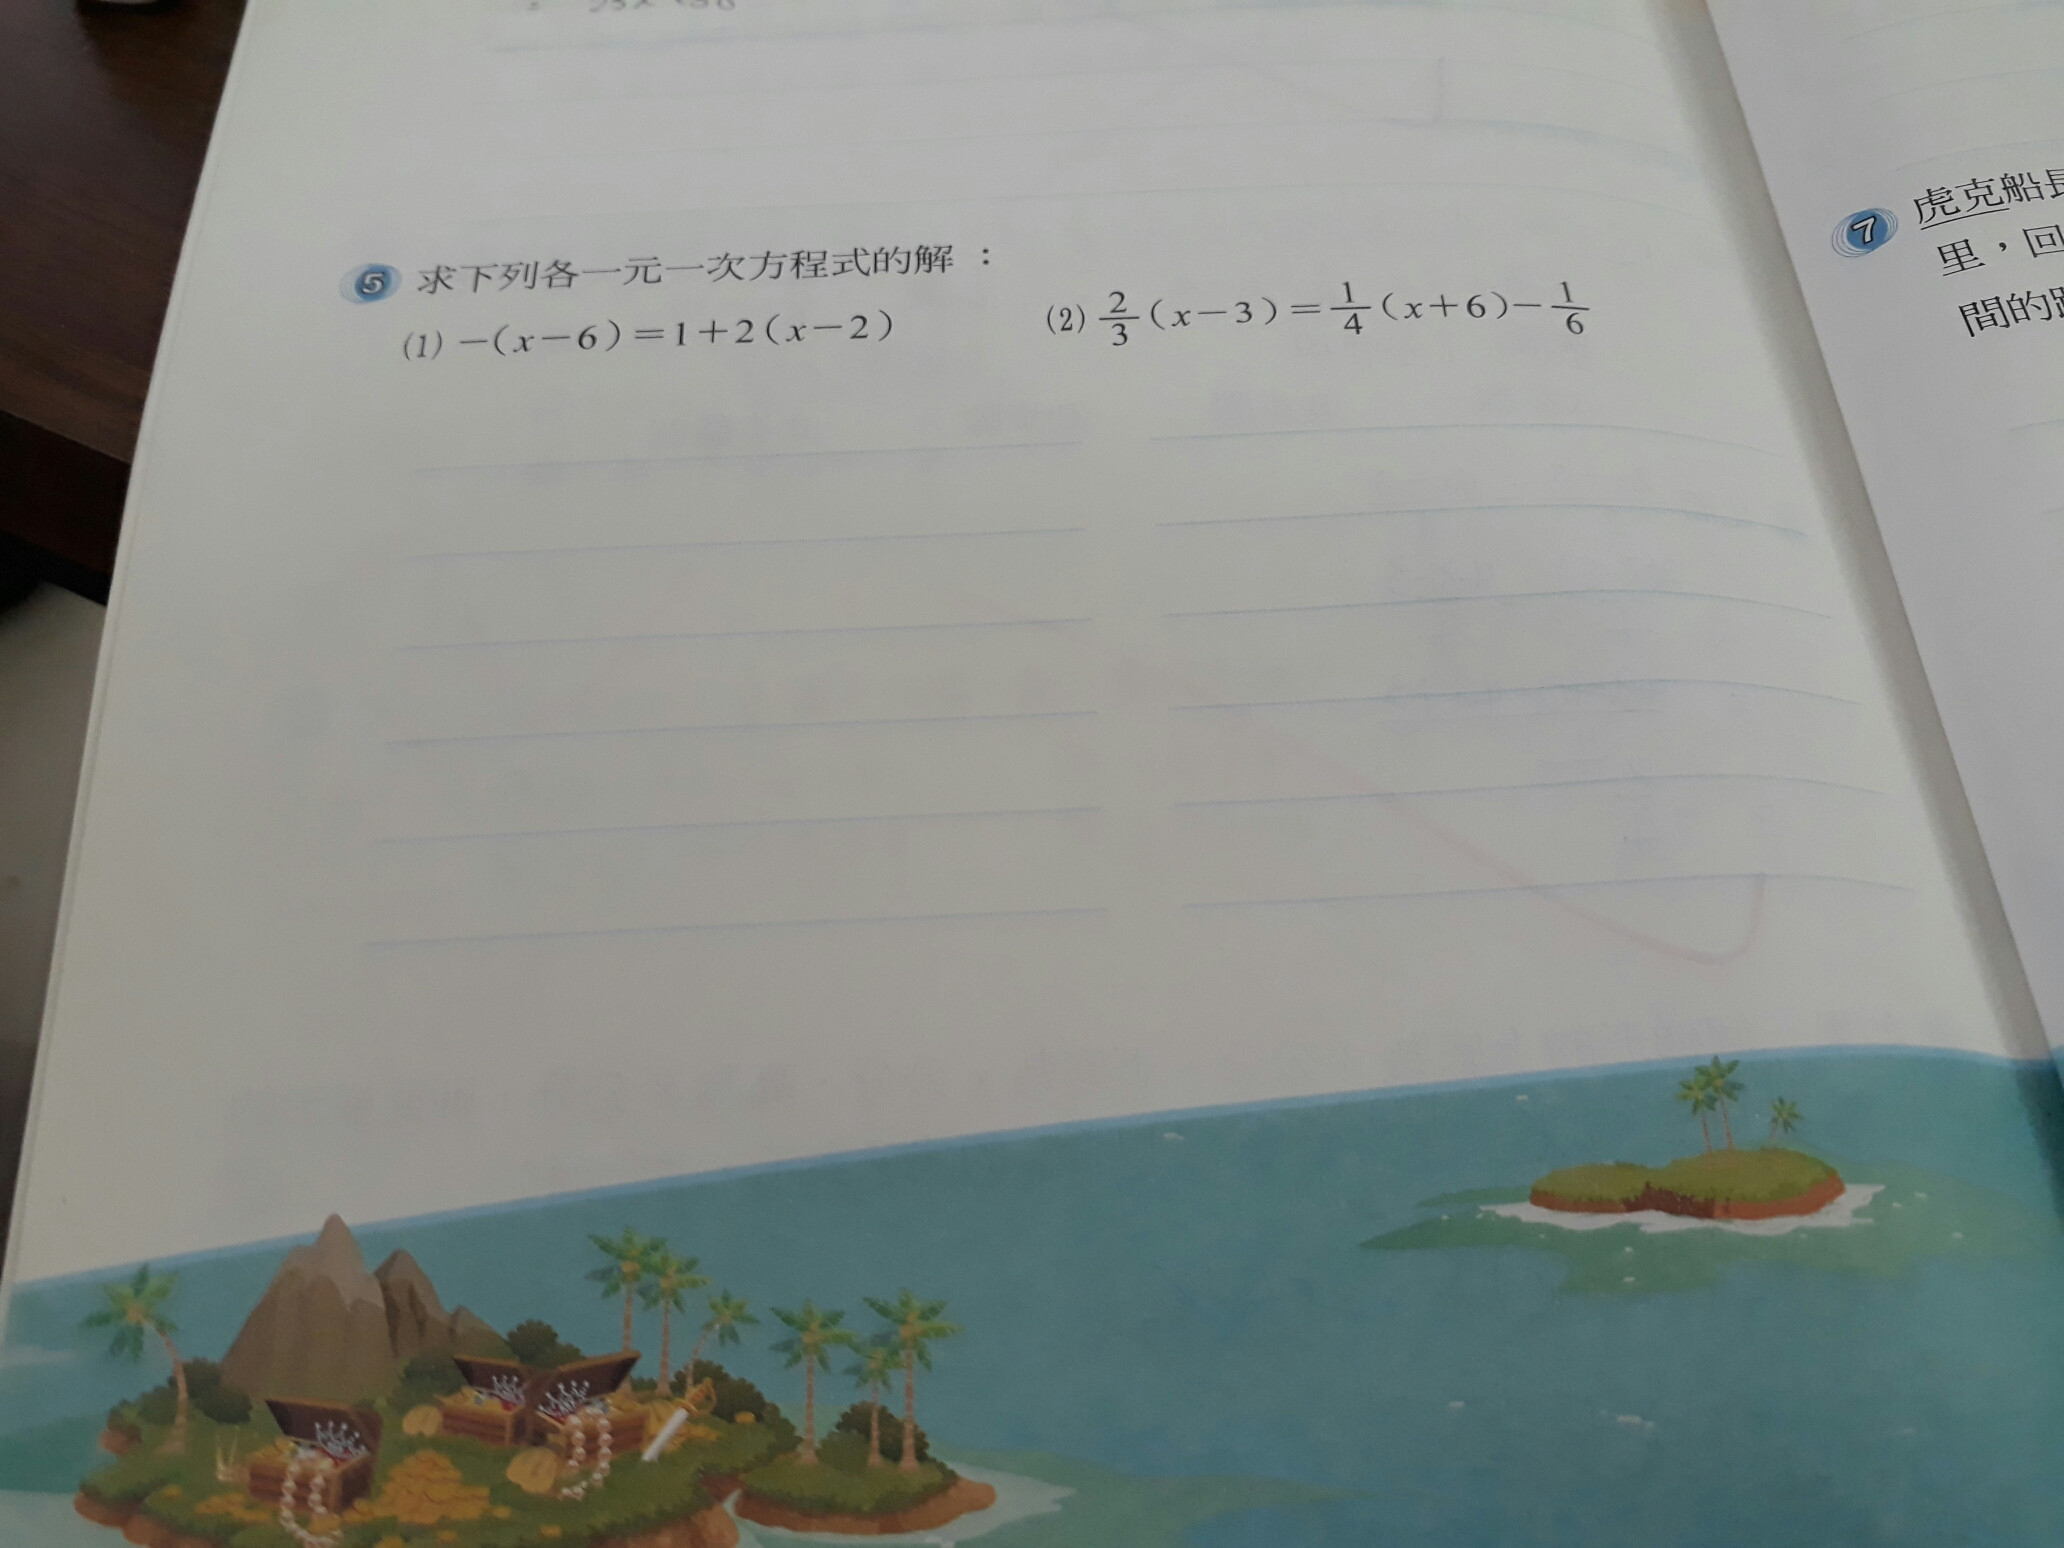 5 求下列各一元一次方程式的解：
(1) －(x－6)＝1＋2(x－2)
(2) 2/3(x－3)＝1/4(x＋6)－1/6
7 虎克船長
里，回
間的